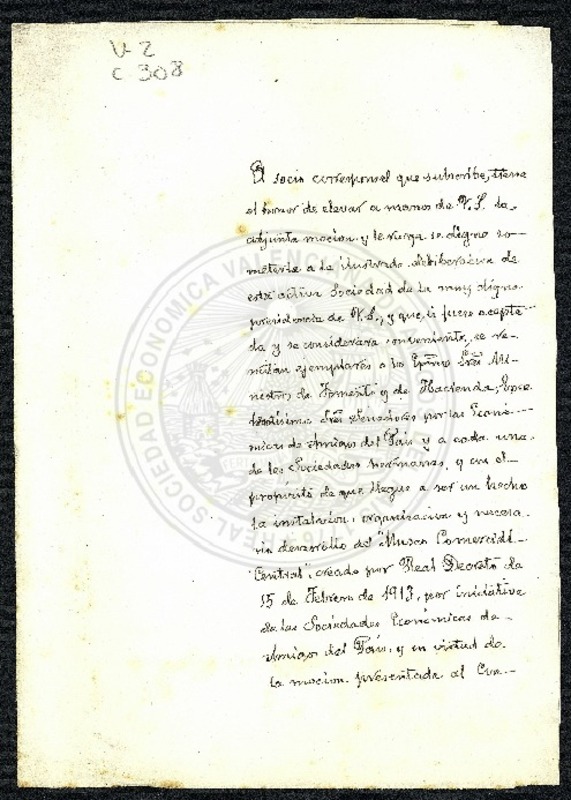 V-2
C 308
El socio corresponsal que subscribe, tiene
el honor de elevar a manos de V.S. la
adjunta mocion y le ruega se digne so-
meterla a la ilustrada deliberacion de
esta activa Sociedad de la muy digna
presidencia de V.S., y que, si fuese acepta-
da y se considerara conveniente, se re-
mitan ejemplares a los Exmos Sres Mi-
nistros de Fomento y de Hacienda,
Sres Senadores por las Econó-
micas de Amigos del Pais y a cada una
de las Sociedades hermanas, y con el
propósito de que llegue a ser un hecho
la instalacion, organizacion y necesa-
rio desarrollo del "Museo Comercial
Central", creado por Real Decreto de
15 de Febrero de 1913, por iniciativa
de las Sociedades Económicas de
Amigos del Pais, y en virtud de
la mocion presentada al Con-
REAL SOCIEDAD ECONOMICA VALENCIANA
1776